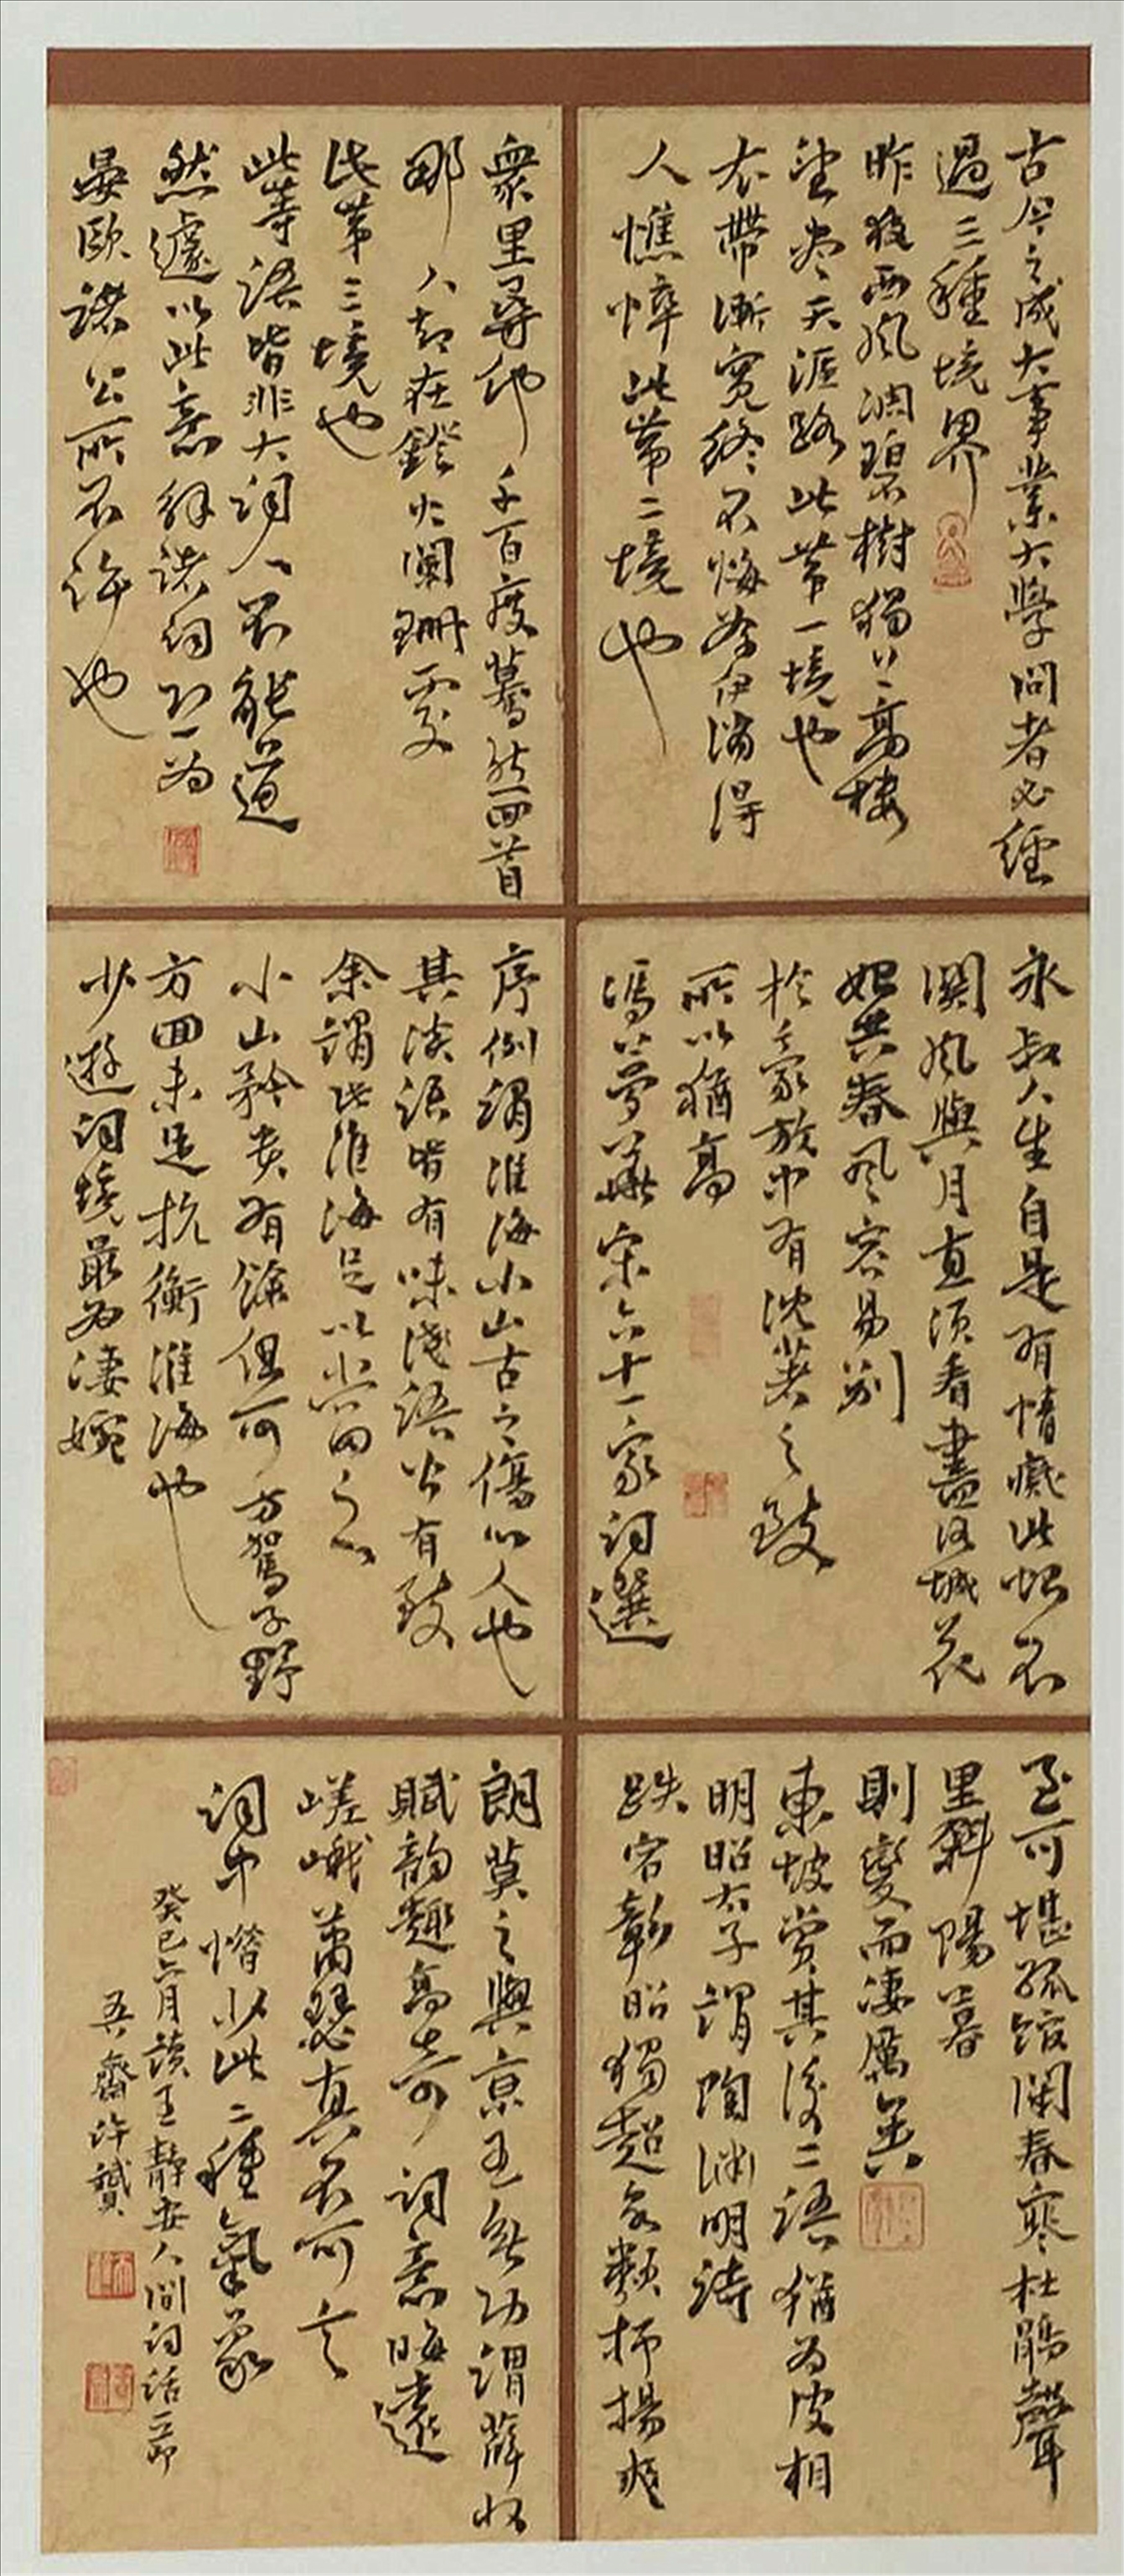 古今之成大事業大學問者必經
過三種境界
昨夜西風凋碧樹獨上高樓
望盡天涯路此第一境也
衣帶漸寬終不悔為伊消得
人憔悴此第二境也
衆里尋他千百度驀然回首
那人却在鐙火闌珊處
此第三境也
此等語皆非大詞人不能道
然遽以此意解諸詞恐為
晏歐諸公所不許也
永叔人生自是有情癡此恨不
關風與月直須看盡洛城花
始共春風容易別
於豪放中有沈著之致
所以猶高
馮夢華宋六十一家詞選
序例謂淮海小山古之傷心人也
其淡語皆有味淺語皆有致
余謂此淮海足以當之
小山矜貴有餘但可方駕子野
方回未足抗衡淮海也
少遊詞境最為淒婉
至可堪孤館閉春寒杜鵑聲
里斜陽暮
則變而淒厲矣
東坡賞其後二語猶為皮相
明昭太子謂陶淵明詩
跌宕彰昭獨超衆類抑揚爽
朗莫之與京王無功謂薛收
賦韵趣高奇詞意晦遠
嵯峨蕭瑟真不可言
詞中惜少此二種氣象
癸巳六月讀王靜安人間詞話一節
吾齋許贇